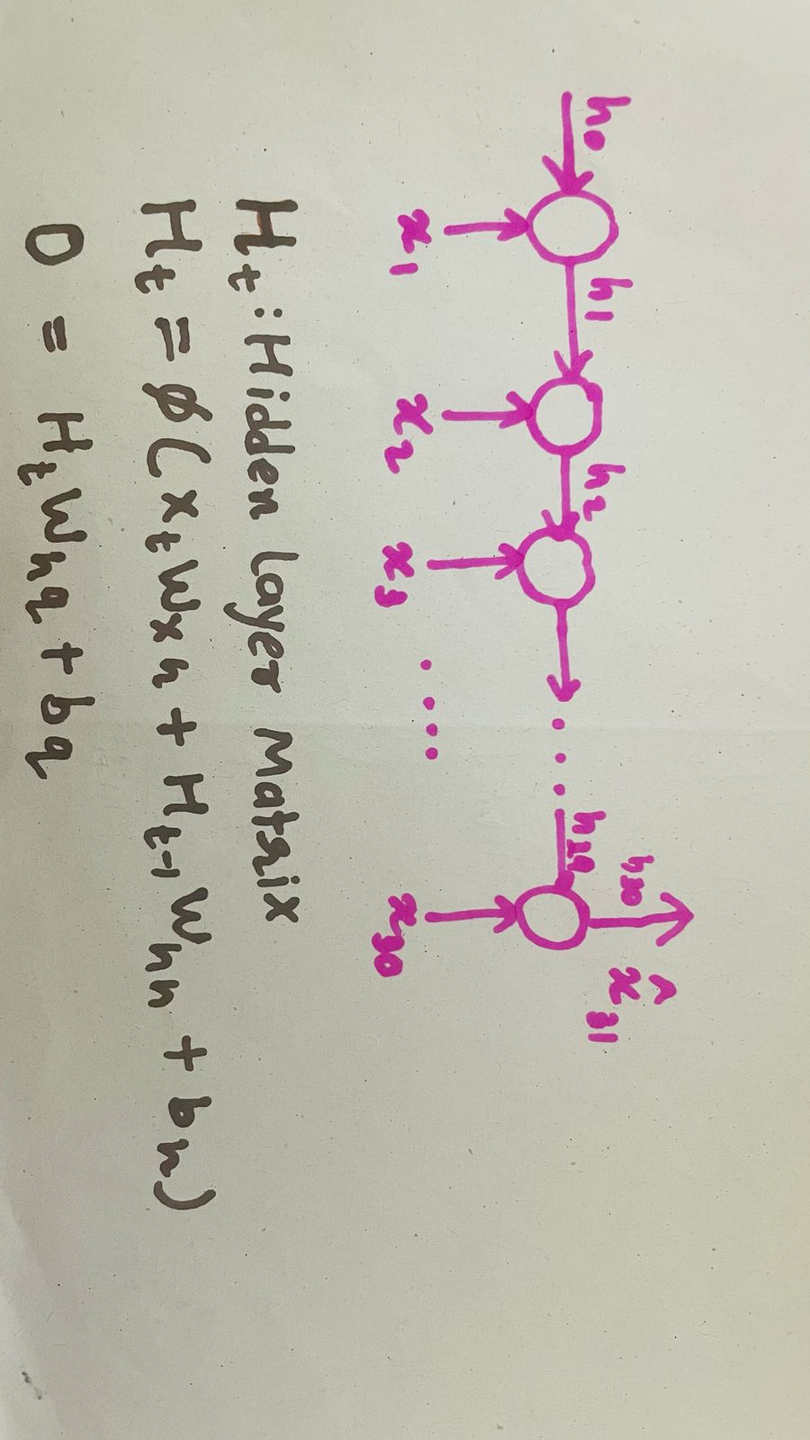 h₀ h₁ h₂ h₂₉ h₃₀ x̂₃₁
x₁ x₂ x₃ .... x₃₀
Hₜ : Hidden Layer Matrix
Hₜ = ϕ(xₜ Wₓₕ + Hₜ₋₁ Wₕₕ + bₕ)
O = Hₜ Wₕq + bq